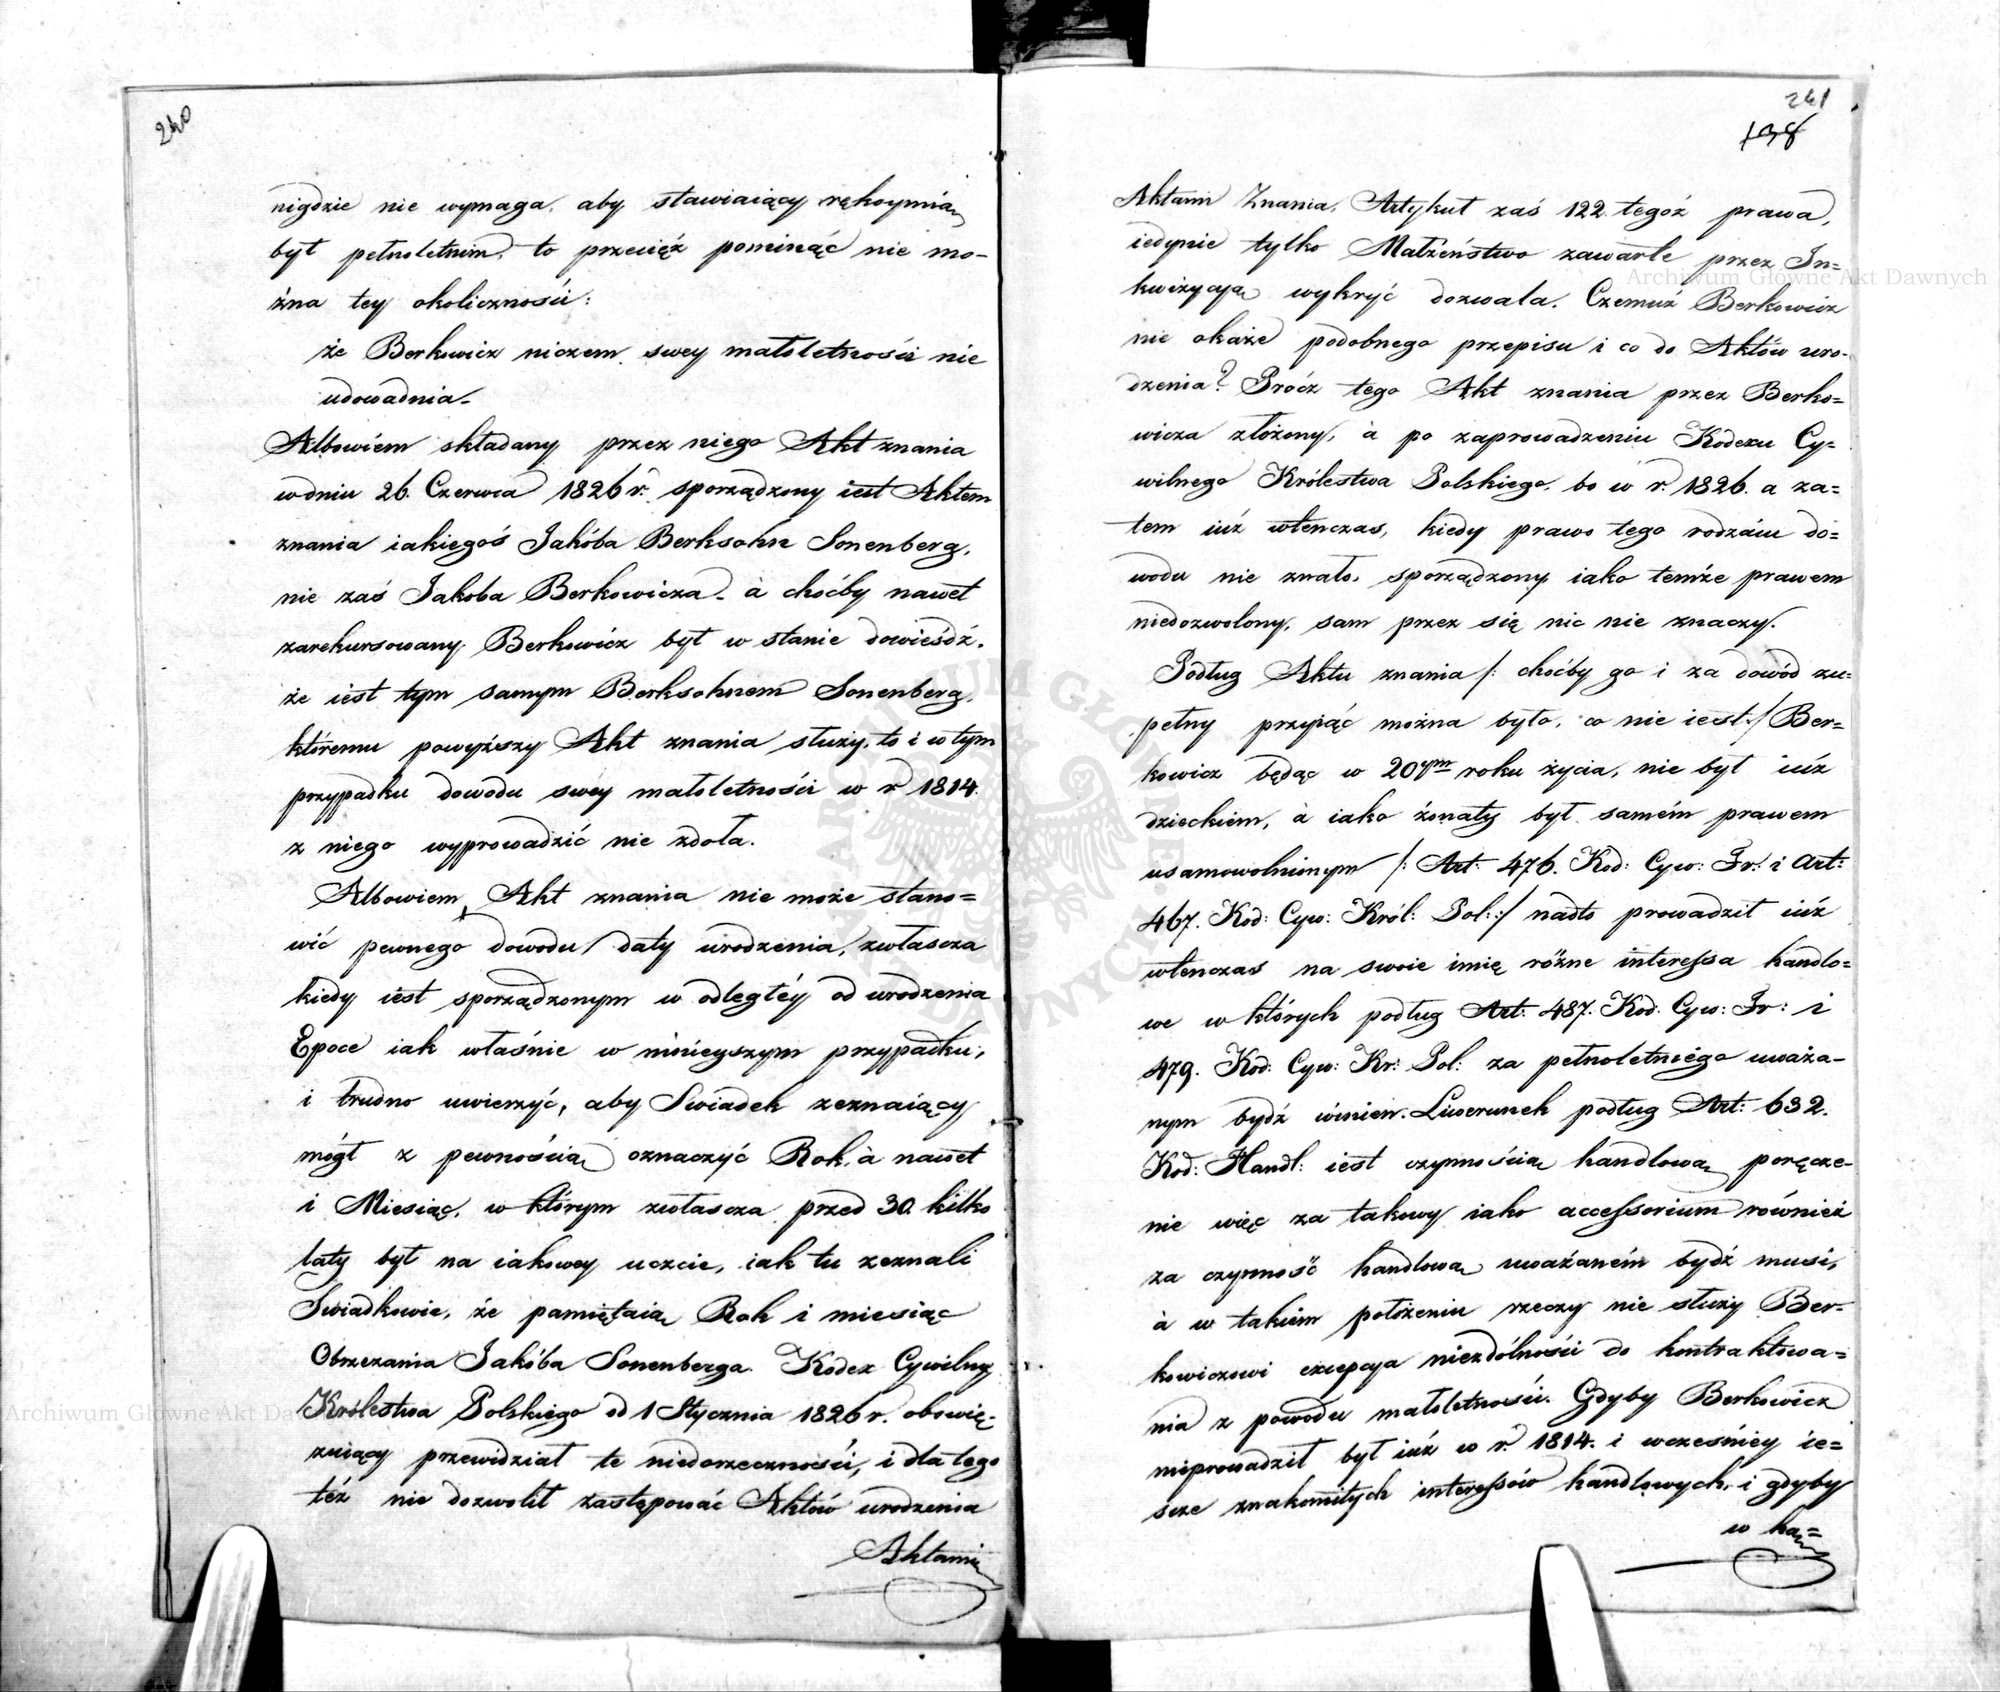 240
nigdzie nie wymaga, aby stawiaiący rękoymią
był pełnoletnim, to przecięż pominąć nie mo-
żna tey okoliczności:
że Berkowicz niczem swey małoletności nie
udowadnia.
Albowiem składany przez niego Akt znania
w dniu 26. Czerwca 1826 r. sporządzony iest Aktem
znania iakiegoś Jakóba Berksohn Sonenberg,
nie zaś Jakoba Berkowicza. à choćby nawet
zarekursowany Berkowicz był w stanie dowieśdź,
że iest tym samym Berksohnem Sonenberg,
któremu powyższy Akt znania służy, to i w tym
przypadku dowodu swéy małoletności w r. 1814.
z niego wyprowadzić nie zdoła.
Albowiem Akt znania nie może stano=
wić pewnego dowodu daty urodzenia, zwłascza
kiedy iest sporządzonym w odległéy od urodzenia
Epoce iak właśnie w ninieyszym przypadku,
i trudno uwierzyć, aby Swiadek zeznaiący
mógł z pewnością oznaczyć Rok, à nawet
i Miesiąc, w którym zwłascza przed 30. kilko
laty był na iakowey uczcie, iak tu zeznali
Swiadkowie, że pamiętaią Rok i miesiąc
Obrzezania Jakóba Sonenberga. Kodex Cywilny
Królestwa Polskiego od 1 Stycznia 1826 r. obowię-
zuiący przewidział te niedorzeczności, i dla tego
też nie dozwolił zastępować Aktów urodzenia
Aktami
241
138
Aktami Znania, Artykuł zaś 122. tegoż prawa,
iedynie tylko Małżeństwo zawarte przez In=
kwizycyą wykryć dozwala. Czemuż Berkowicz
nie okaże podobnego przepisu i co do Aktów uro-
dzenia? Prócz tego Akt znania przez Berko=
wicza złożony, à po zaprowadzeniu Kodexu Cy=
wilnego Królestwa Polskiego, bo w r. 1826. a za=
tem iuż wtenczas, kiedy prawo tego rodzáiu do=
wodu nie znało, sporządzony iako temże prawem
niedozwolony, sam przez się nic nie znaczy.
Podług Aktu znania /: choćby go i za dowód zu=
pełny przyiąć można było, co nie iest :/ Ber=
kowicz będąc w 20ym roku życia, nie był iuż
dzieckiem, à iako żonaty był samém prawem
usamowolnionym /: Art: 476. Kod: Cyw: Fr: i Art:
467. Kod: Cyw: Król: Pol: :/ nadto prowadził iuż
wtenczas na swoie imię różne interessa handlo=
we w których podług Art: 487. Kod: Cyw: Fr: i
479. Kod: Cyw: Kr: Pol: za pełnoletniégo uważa-
nym bydź winien. Liwerunek podług Art: 632.
Kod: Handl: iest czynnością handlową poręcze-
nie więc za takowy iako accessorium również
za czynność handlową uważaném bydź musi,
à w takiém położeniu rzeczy nie służy Ber=
kowiczowi excepcya niezdólności do kontraktowa=
nia z powodu małoletności. Gdyby Berkowicz
nieprowadził był iuż w r. 1814. i wcześniéy ie=
scze znakomitych interessów handlowych, i gdyby
w ha=
Archiwum Główne Akt Dawnych
Archiwum Główne Akt Dawnych
ARCHIWUM GŁÓWNE AKT DAWNYCH